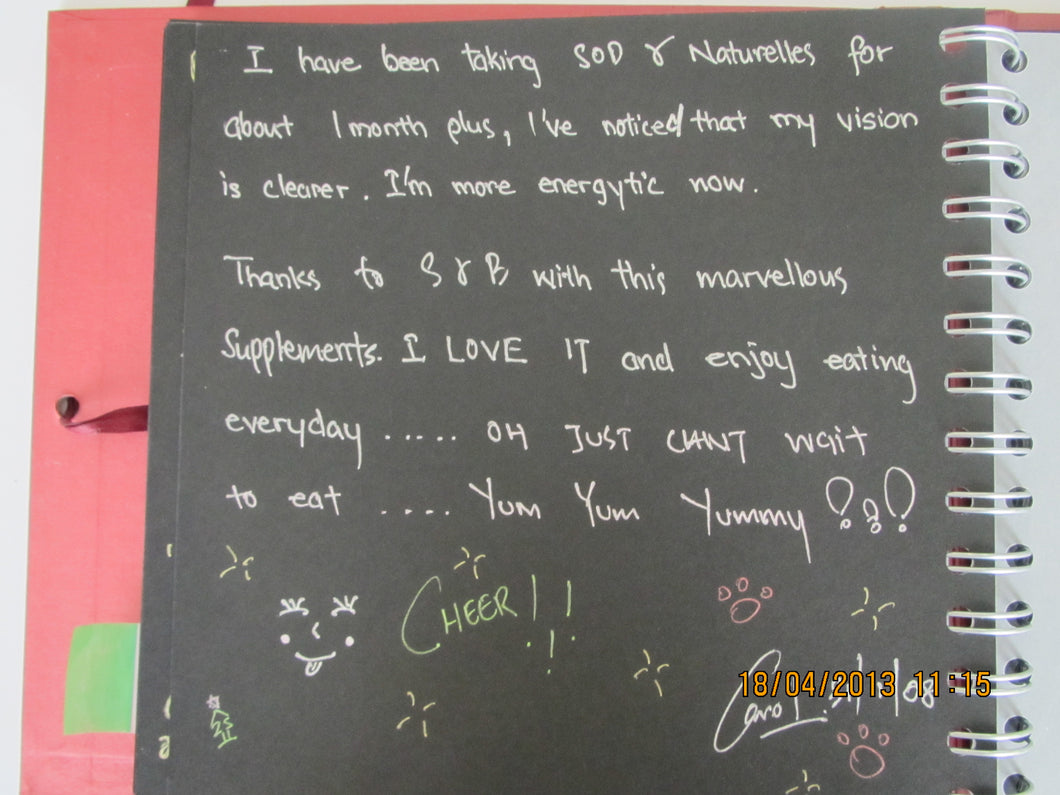 I have been taking SOD & Naturelles for
about 1 month plus, I've noticed that my vision
is clearer. I'm more energytic now.
Thanks to S & B with this marvellous
Supplements. I LOVE IT and enjoy eating
everyday ..... OH JUST CAN'T wait
to eat .... Yum Yum Yummy !!!
CHEER!!!
18/04/2013 11:15
Carol